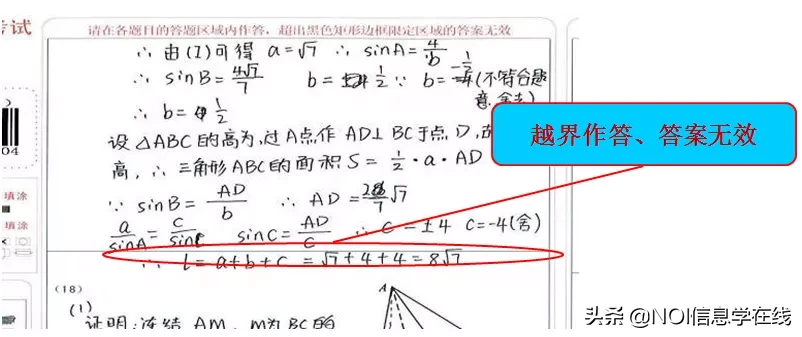 考试
请在各题目的答题区域内作答，超出黑色矩形边框限定区域的答案无效
∴ 由(I)可得 a=√7 ∴ sinA=4/b
∴ sinB=4√7/7 b= 1/2 ∵ b=-1/2 (不符合题
意,舍去)
∴ b= 1/2
04
设△ABC的高为,过A点作AD⊥BC于点D,故
越界作答、答案无效
高,∴三角形ABC的面积S=1/2·a·AD
填涂
∵ sinB=AD/b ∴ AD= /7 √7
填涂
a/sinA=c/sinC sinC=AD/C ∴ C=±4 c=-4(舍)
∴ l=a+b+c=√7+4+4=8√7
(18)
(1)
证明:连结AM,M为BC的
A
头条 @NOI信息学在线